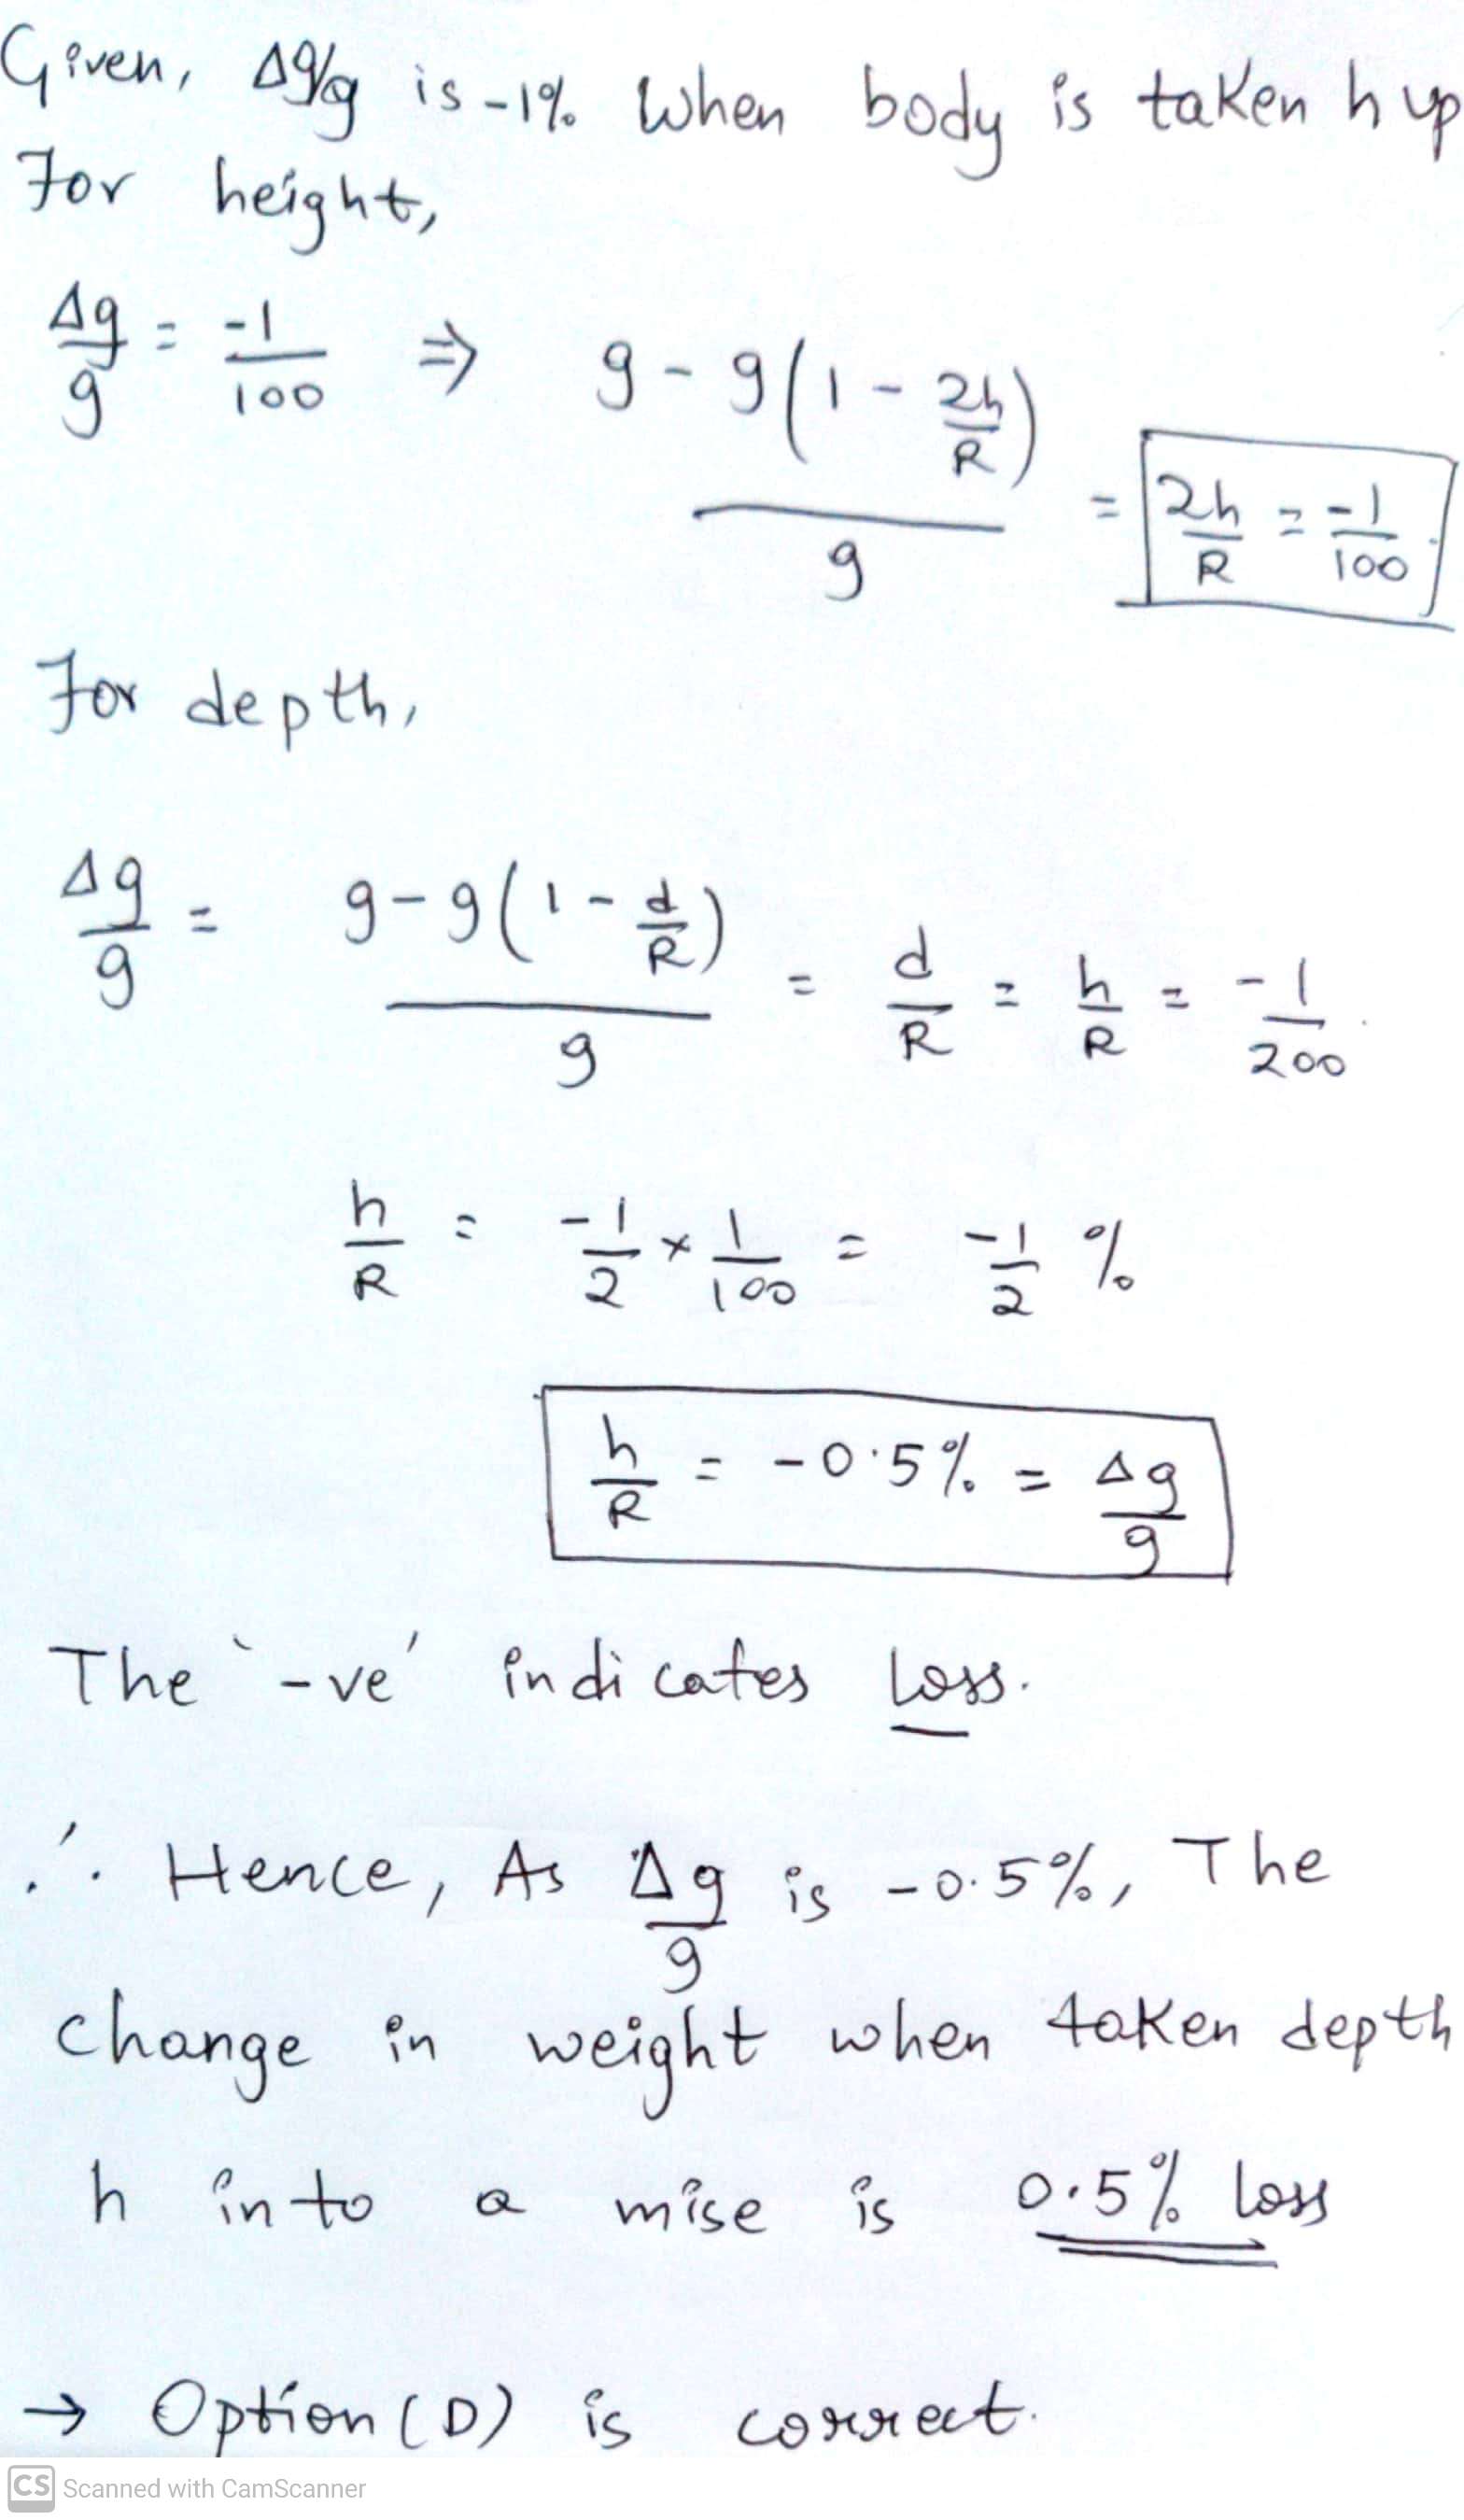 Given, Δg/g is -1% When body is taken h up
For height,
Δg/g = -1/100 ⇒ g - g(1 - 2h/R) / g = 2h/R = -1/100
For depth,
Δg/g = g - g(1 - d/R) / g = d/R = h/R = -1/200
h/R = -1/2 × 1/100 = -1/2 %
h/R = -0.5% = Δg/g
The '-ve' indicates Loss.
∴ Hence, As Δg/g is -0.5%, The
change in weight when taken depth
h into a mise is 0.5% loss
→ Option (D) is correct.
CS Scanned with CamScanner